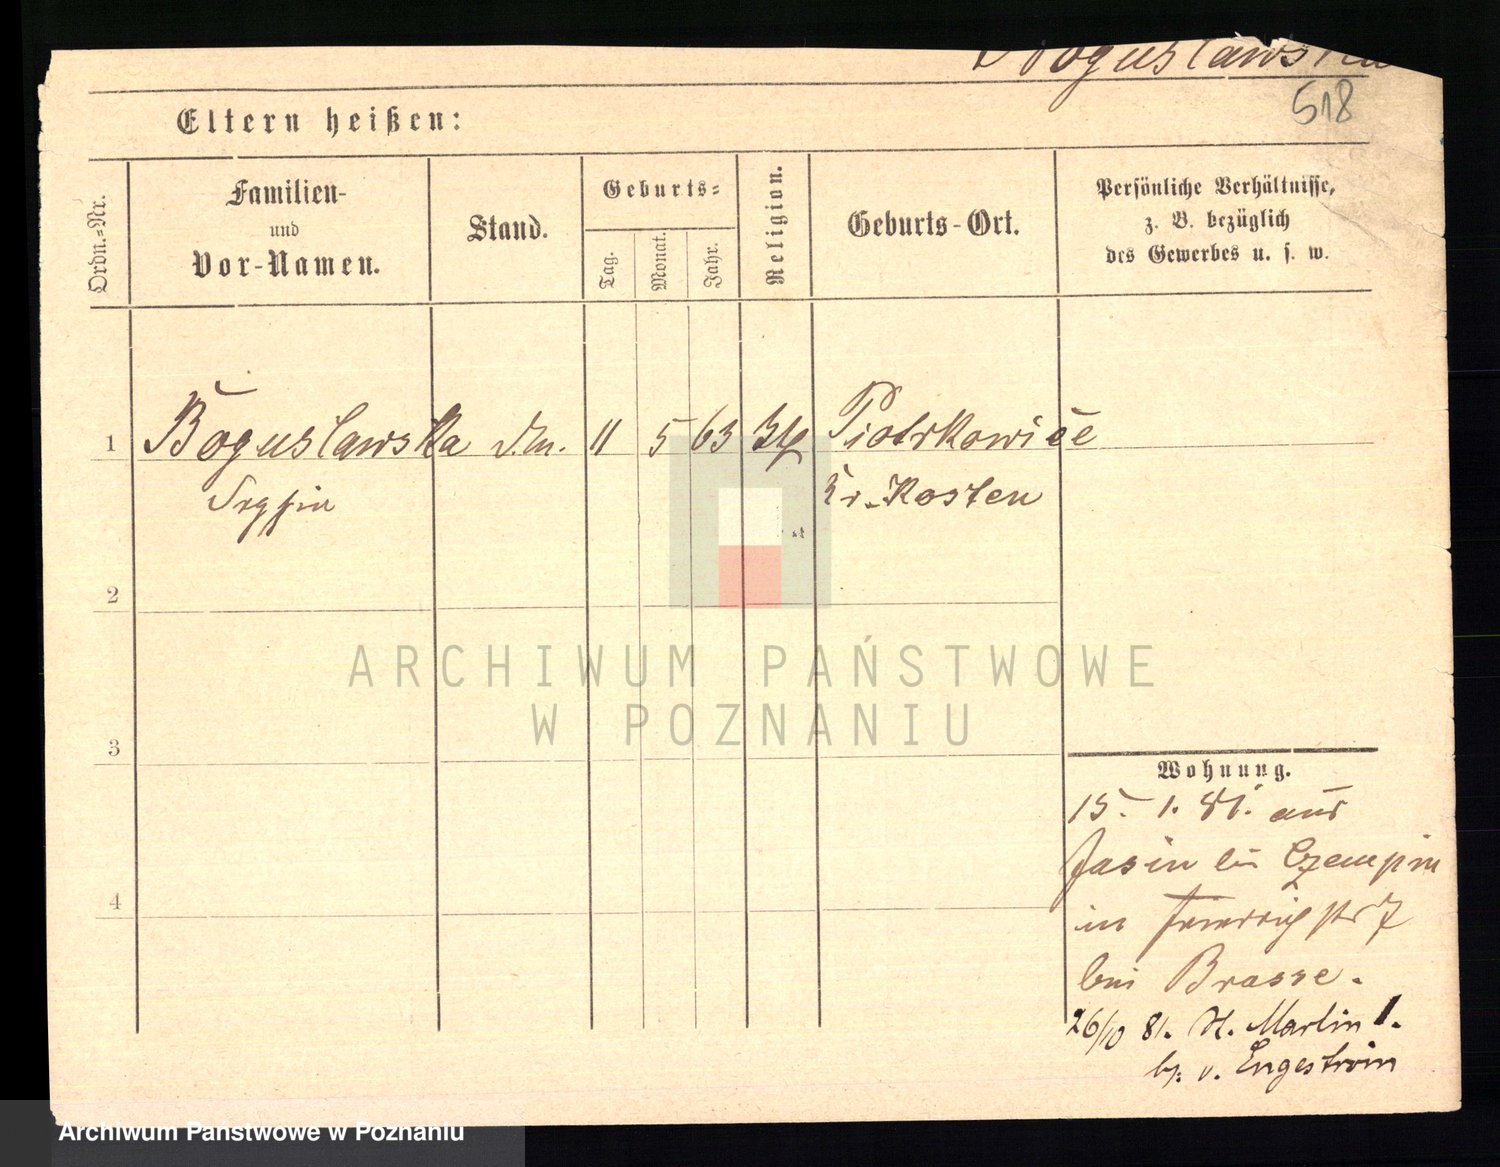 Boguslawska
518
Eltern heißen:
Ordn.-Nr.
Familien-
und
Vor-Namen.
Stand.
Geburts-
Tag.
Monat.
Jahr.
Religion.
Geburts-Ort.
Persönliche Verhältnisse,
z. B. bezüglich
des Gewerbes u. s. w.
1 Boguslawska 11 5 63 Piotrkowice
Kr. Kosten
2
3
4
Wohnung.
15. 1. 81. aus
Jasin bei Czempin
in 7
bei Brasse.
26/10 81. St. Martin 1.
b. v. Engeström
ARCHIWUM PAŃSTWOWE
W POZNANIU
Archiwum Państwowe w Poznaniu